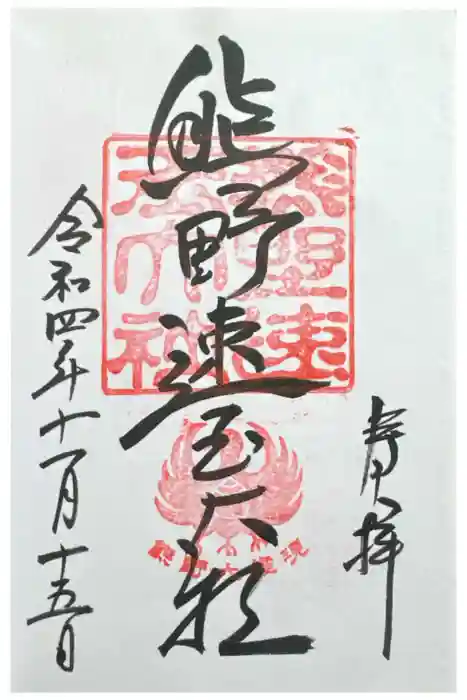 奉拝
熊野速玉大社
熊野速
熊野大権現
令和四年十一月十五日